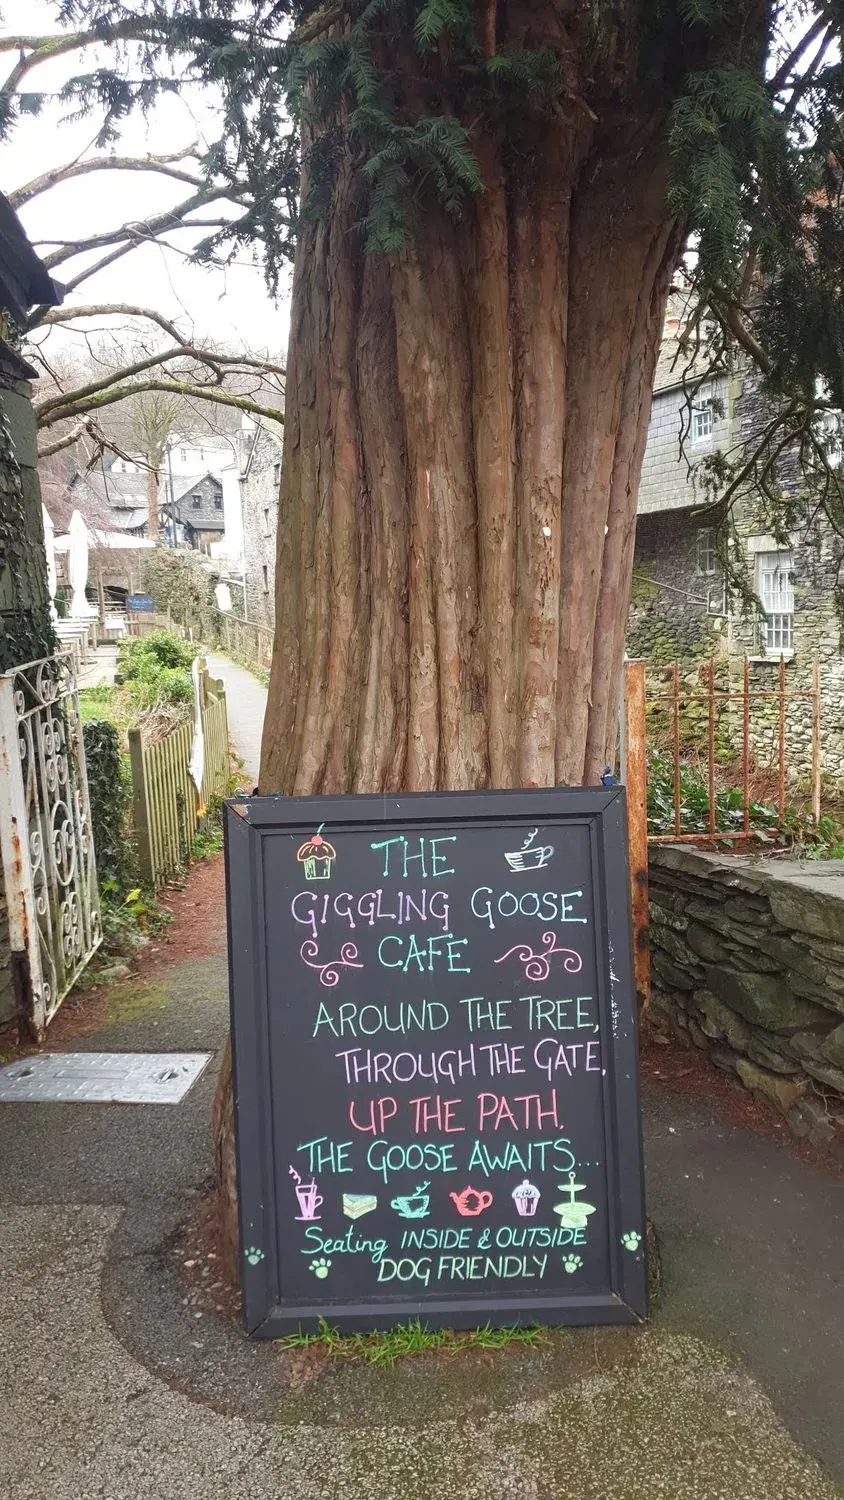 THE
GIGGLING GOOSE
CAFE
AROUND THE TREE,
THROUGH THE GATE,
UP THE PATH.
THE GOOSE AWAITS...
Seating INSIDE & OUTSIDE
DOG FRIENDLY